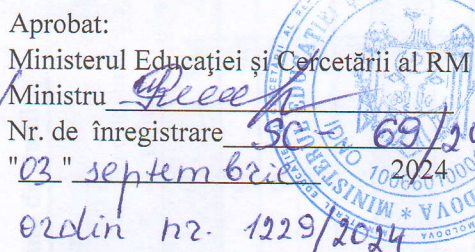 Aprobat:
Ministerul Educaţiei și Cercetării al RM
Ministru
Nr. de înregistrare SC - 69/20
"03" septembrie 2024
ordin nr. 1229/2024